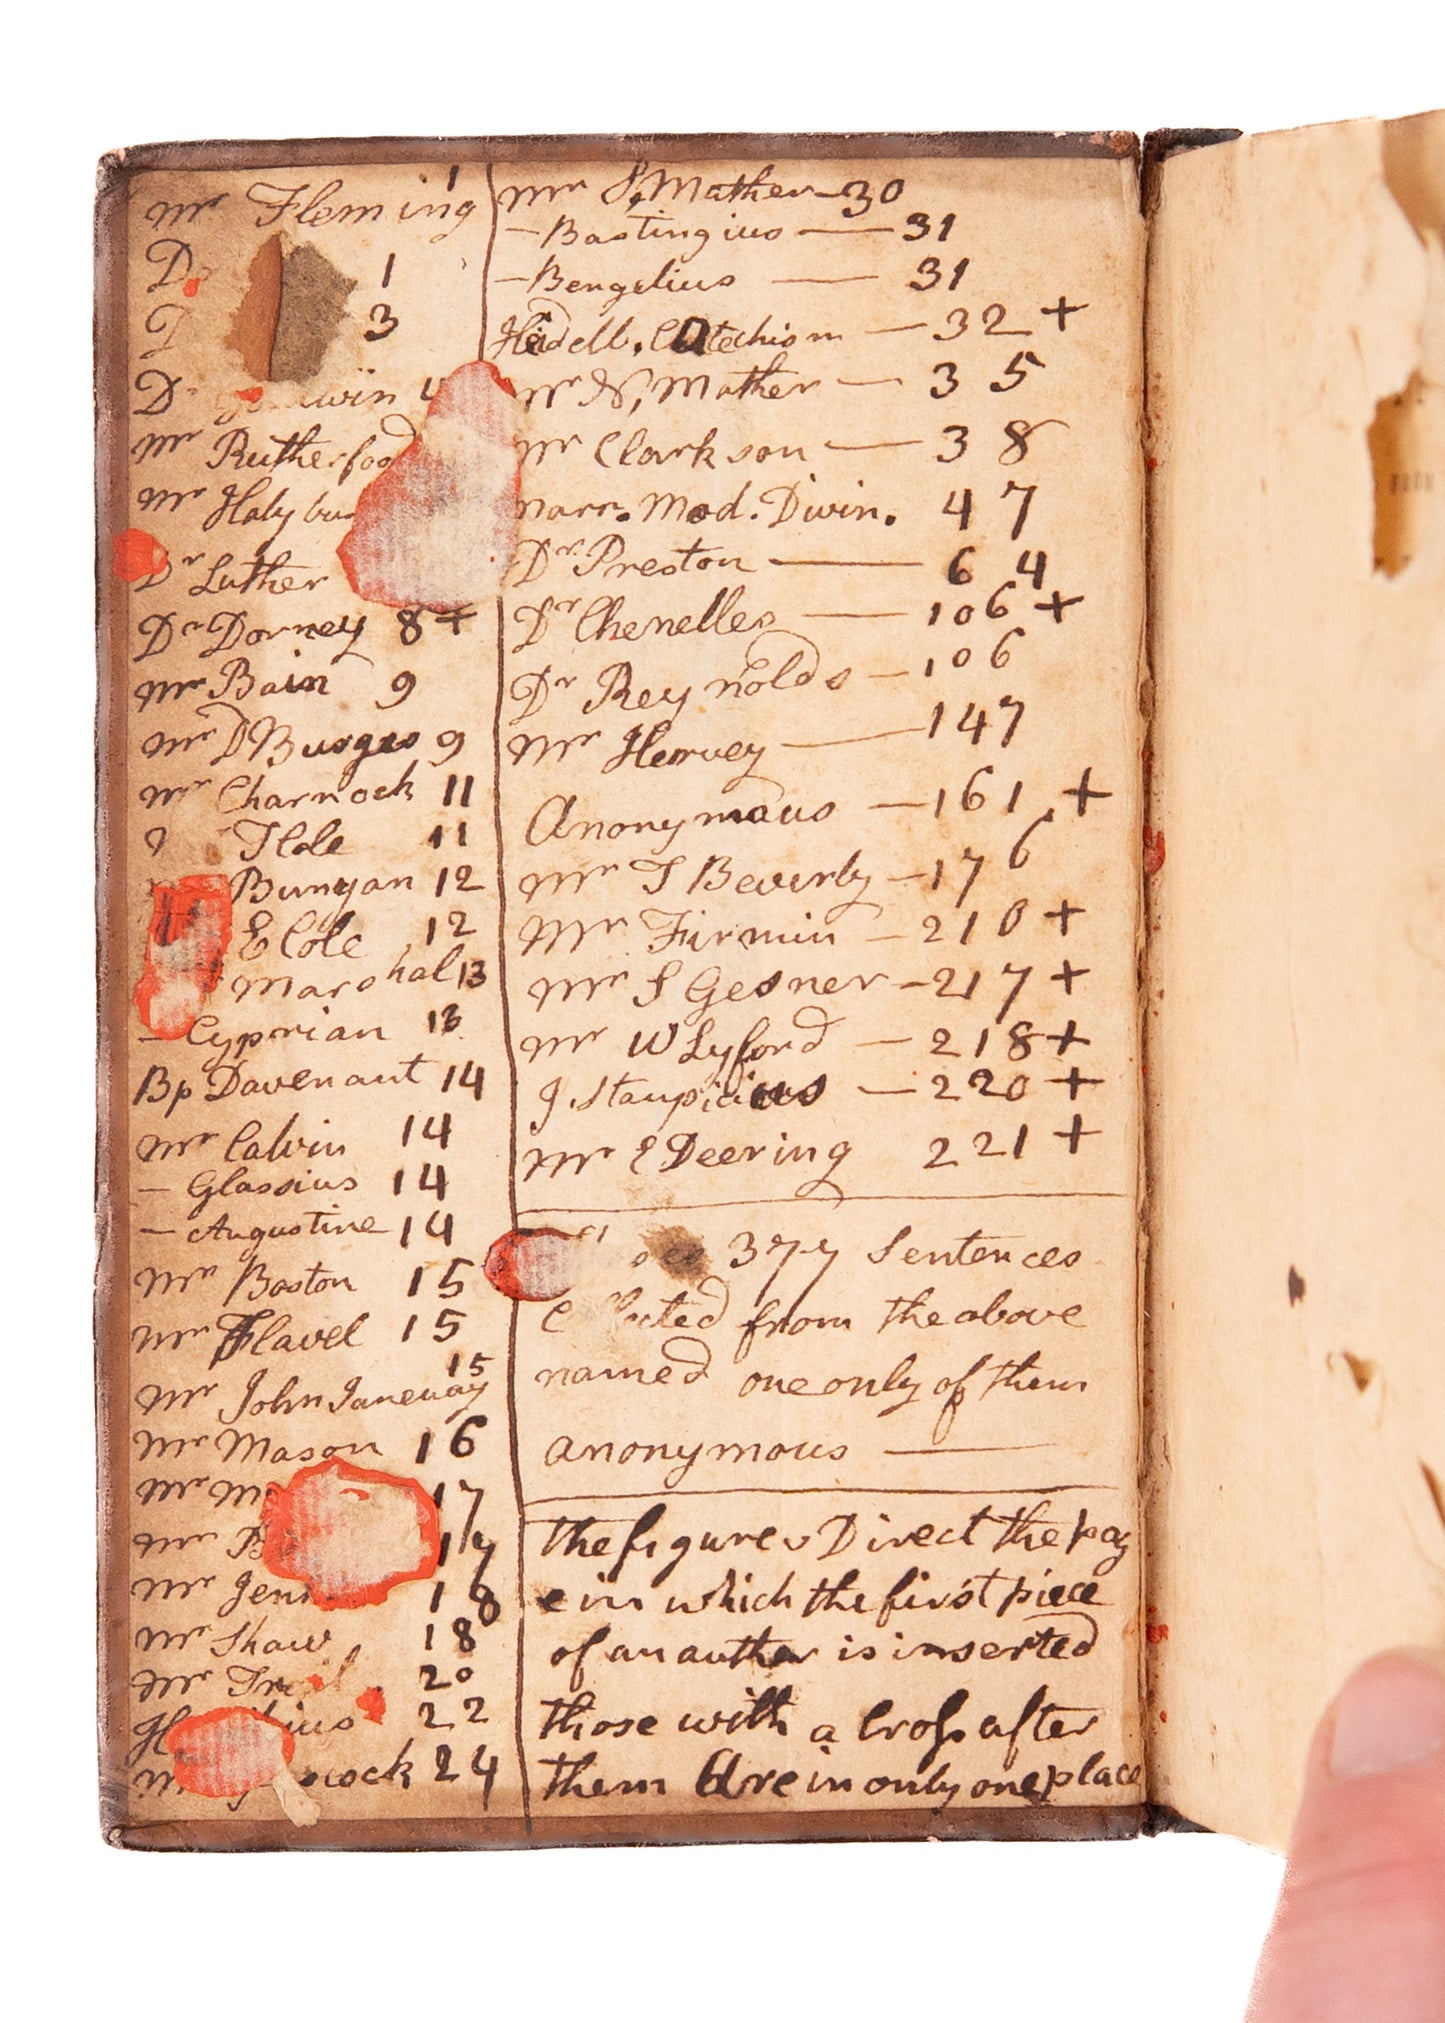 Mr Fleming 1
1
3
Mr
Mr
Dr Luther
Dr Dorney 8 +
Mr Bain 9
Mr D Burges 9
Mr Charnock 11
T Cole 11
Bunyan 12
E Cole 12
Marshal 13
— Cyprian 13
Bp Davenant 14
Mr Calvin 14
— Glassius 14
— Augustine 14
Mr Boston 15
Mr Flavel 15
Mr John Janeway 15
Mr Mason 16
Mr 17
Mr 17
Mr 18
Mr Shaw 18
Mr 20
22
24
Mr S, Mather — 30
— Bastingius — 31
— Bengelius — 31
Heidell. Catechism — 32 +
Mr N, Mather — 35
Mr Clarkson — 38
Marr. Mod. Divin. 47
Dr Preston — 64
Dr Chenelles — 106 +
Dr Reynolds — 106
Mr Hervey — 147
Anonymous — 161 +
Mr T Beverly — 176
Mr Firmin — 210 +
Mr S Gesner — 217 +
Mr W Lyford — 218 +
J. Staupicius — 220 +
Mr E Deering 221 +
377 Sentences
from the above
named one only of them
anonymous —
the figures Direct the pag
e in which the first piece
of an author is inserted
those with a Cross after
them Are in only one place